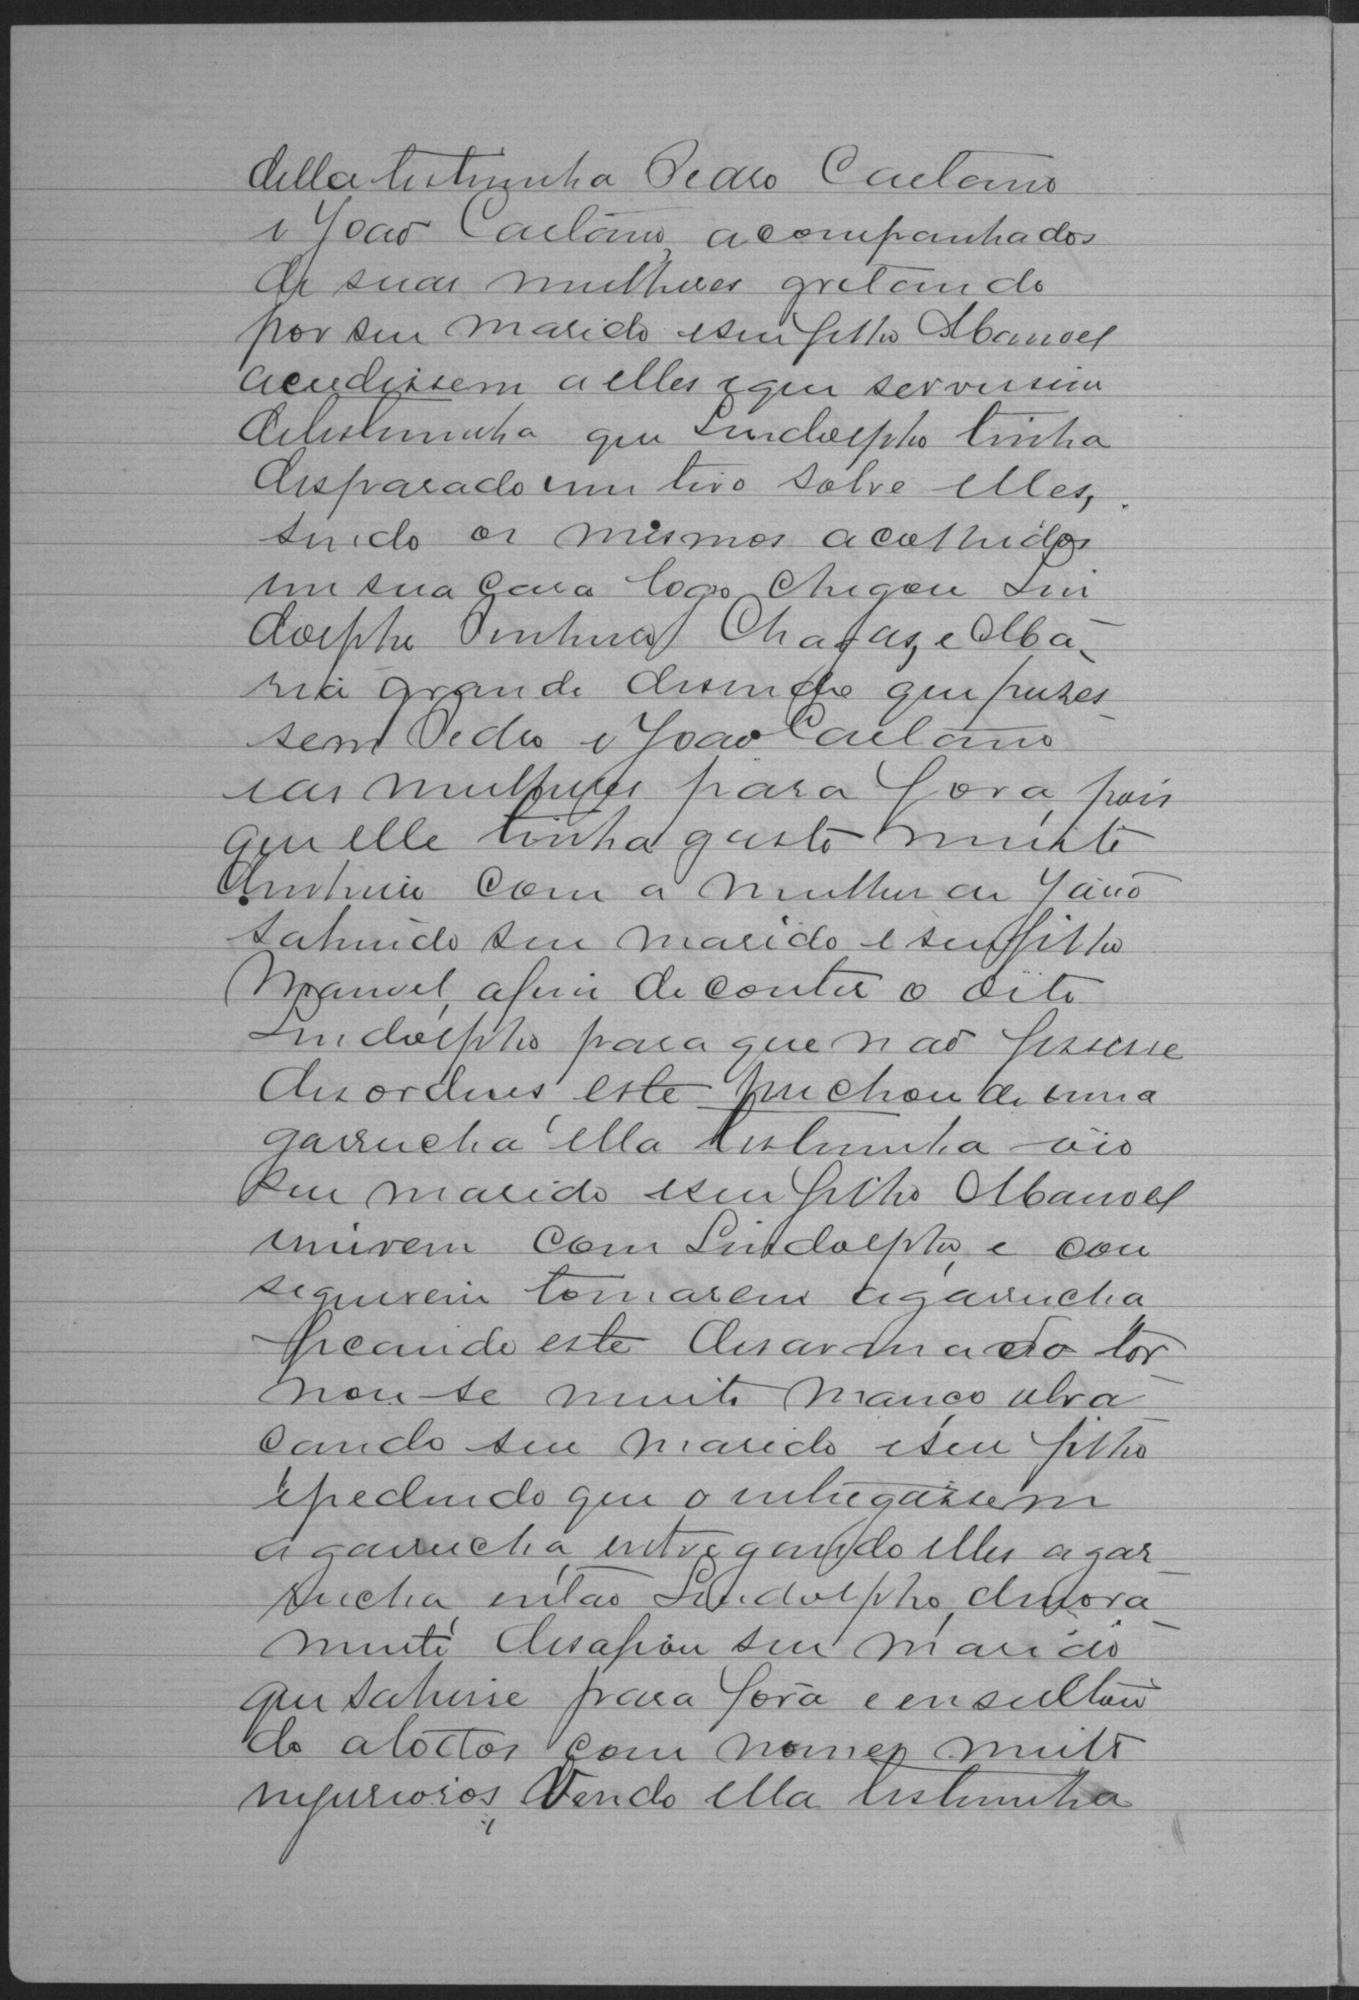 della testimunha Pedro Caetano
e João Caetano, acompanhados
de suas mulheres gretando
por seu marido eseu filho Manoel
acudissem a elles e que servissem
detestimunha que Lindolpho tinha
desparado um tiro sobre elles,
sendo os mesmos acolhidos
em sua casa logo chegou Lin
dolpho Ventura Chagas, e Ma-
ria grande disendo que puzes-
sem Pedro e João Caetano
eas mulheres para fora, pois
que elle tinha gusto muito
com a mulher de João
sahindo seu marido e seu filho
Manoel, afim de conter o dito
Lindolpho para que não fisesse
desordens, este puchou de uma
garrucha ella testimunha vio
seu marido eseu filho Manoel
unirem com Lindolpho, e con
seguirem tomarem agarrucha
ficando este desarmado tor-
nou-se muito manço abra-
cando seu marido eseu filho
epedindo que o entregassem
a garrucha, entregando elles agar-
rucha, então Lindolpho,
desafiou seu marido
que sahisse para fora e ensultan
do atodos com nomes muito
injuriosos, Vendo ella testimunha